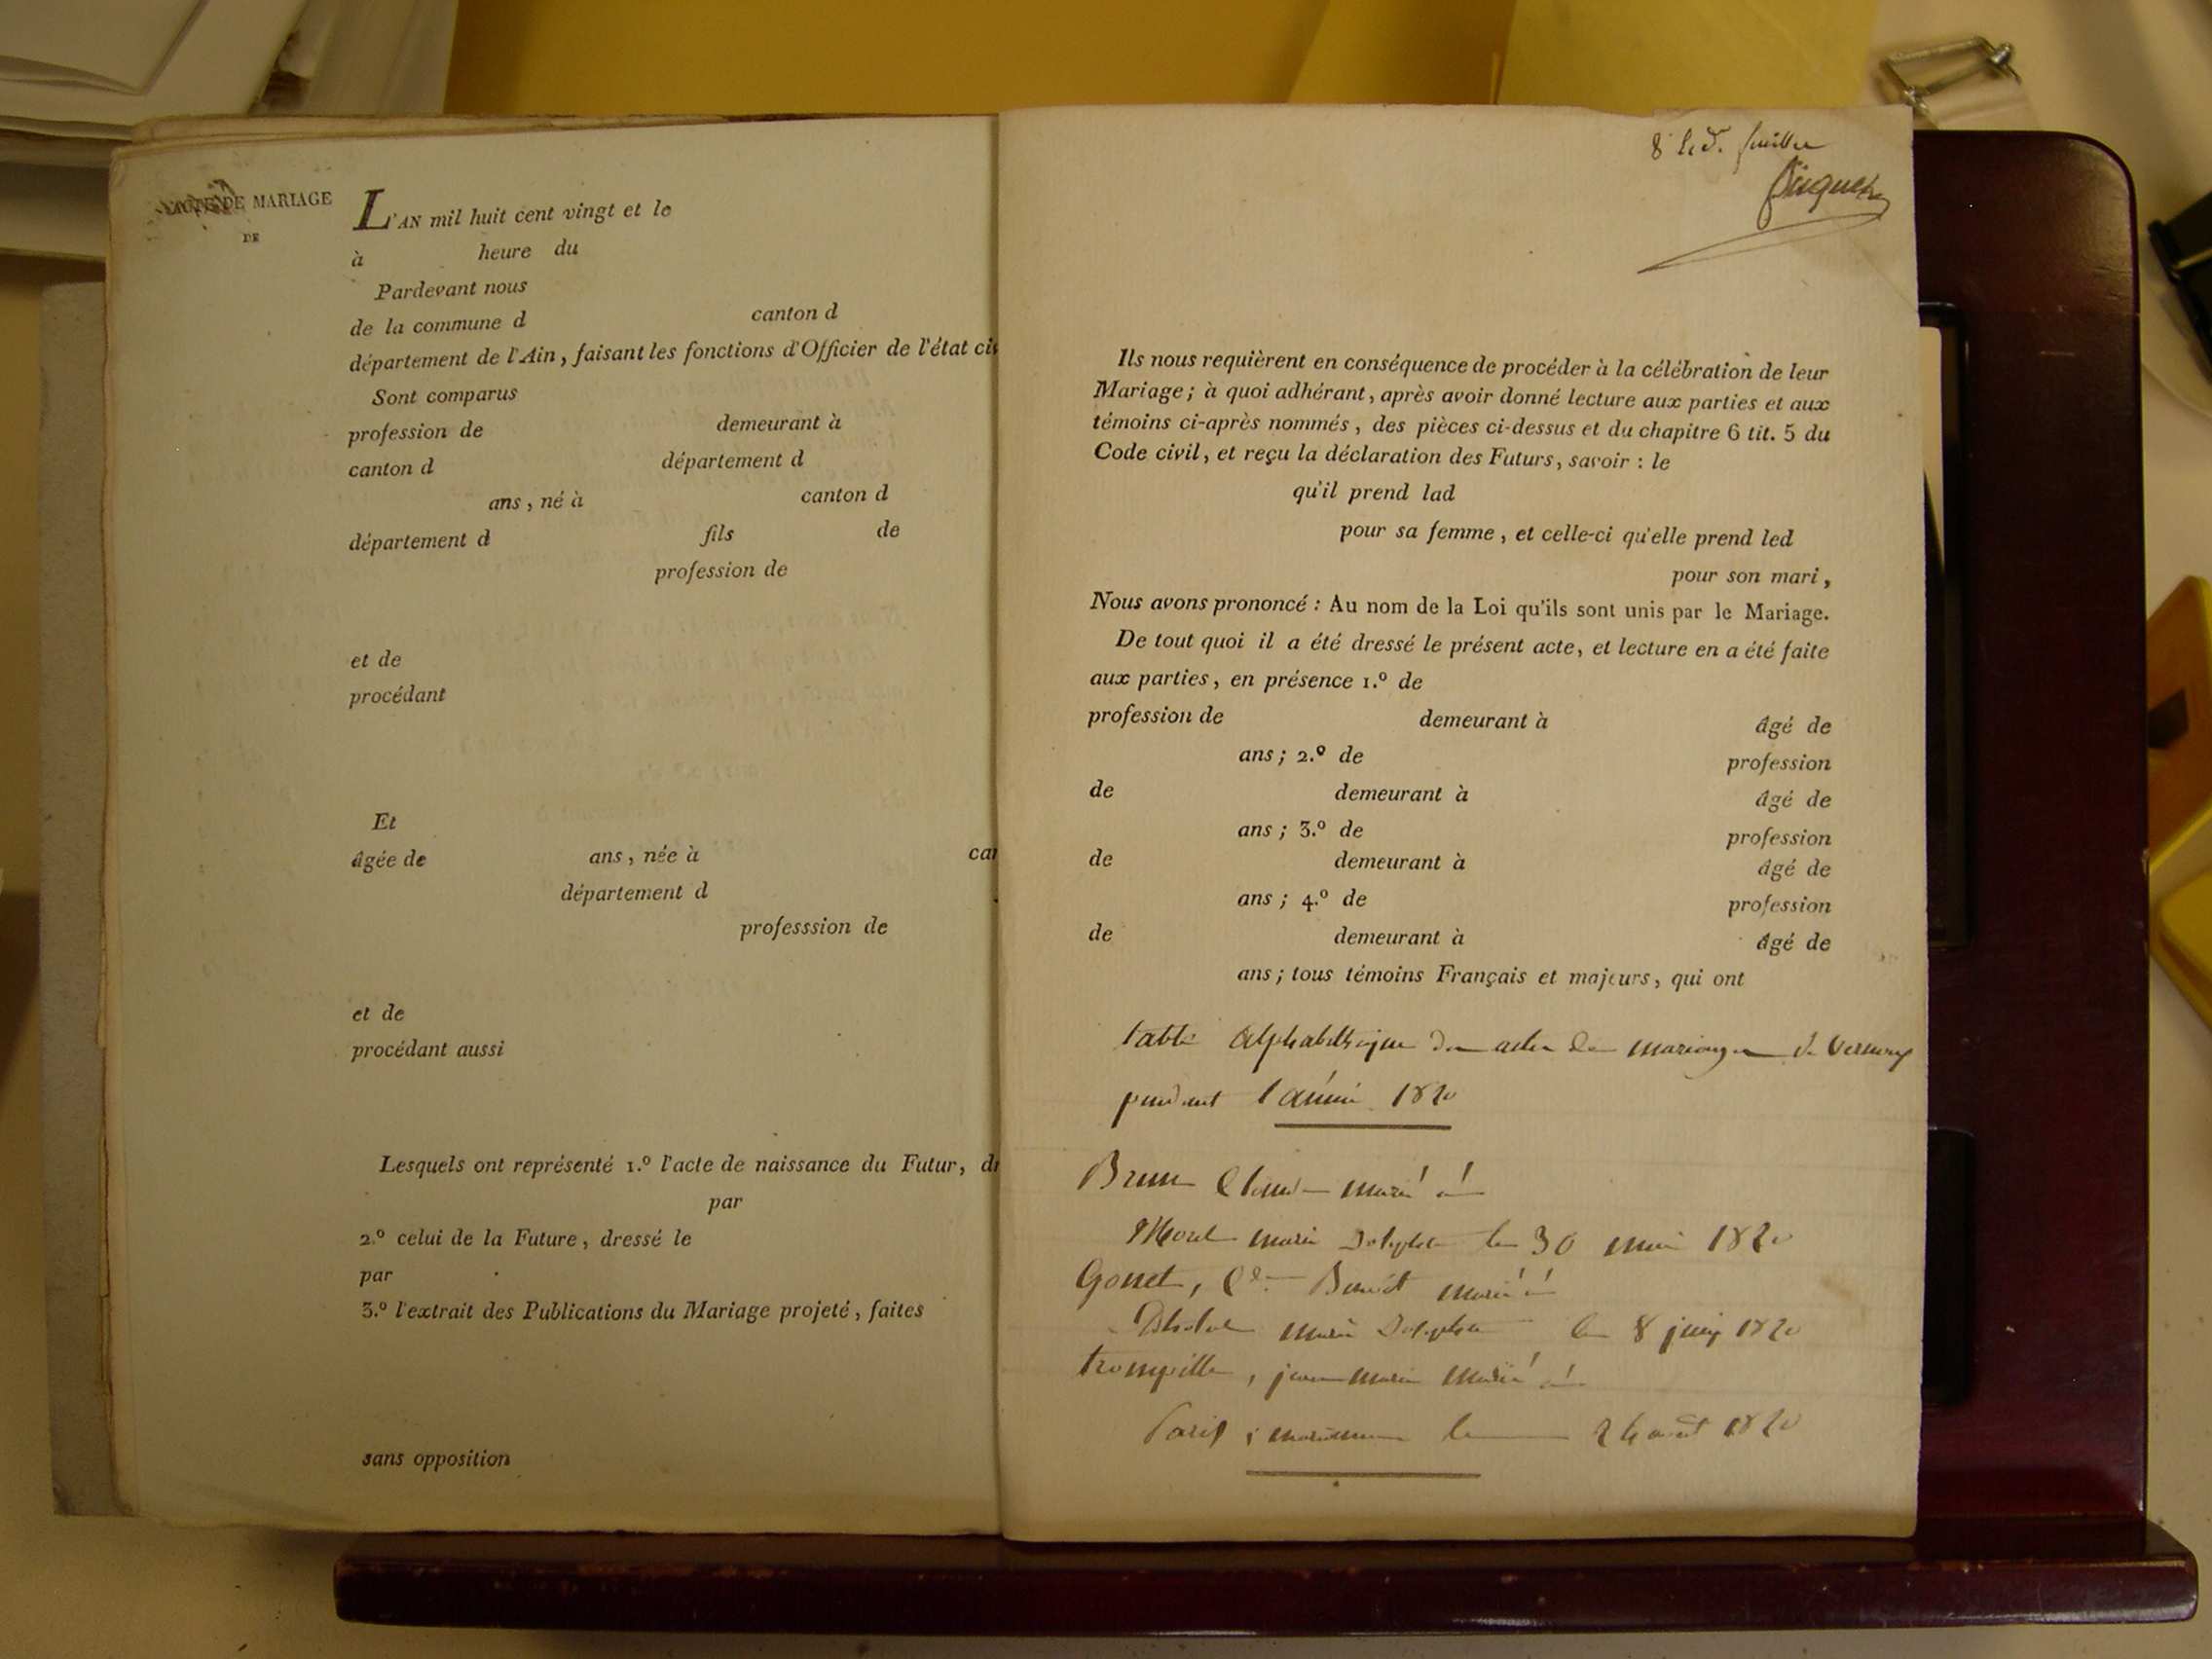 ACTE DE MARIAGE
DE
L'AN mil huit cent vingt et le
à heure du
Pardevant nous
de la commune d canton d
département de l'Ain, faisant les fonctions d'Officier de l'état civ
Sont comparus
profession de demeurant à
canton d département d
ans, né à canton d
département d fils de
profession de
et de
procédant
Et
âgée de ans, née à can
département d
professsion de
et de
procédant aussi
Lesquels ont représenté 1.º l'acte de naissance du Futur, dr
par
2.º celui de la Future, dressé le
par
3.º l'extrait des Publications du Mariage projeté, faites
sans opposition
Ils nous requièrent en conséquence de procéder à la célébration de leur
Mariage; à quoi adhérant, après avoir donné lecture aux parties et aux
témoins ci-après nommés, des pièces ci-dessus et du chapitre 6 tit. 5 du
Code civil, et reçu la déclaration des Futurs, savoir : le
qu'il prend lad
pour sa femme, et celle-ci qu'elle prend led
pour son mari,
Nous avons prononcé : Au nom de la Loi qu'ils sont unis par le Mariage.
De tout quoi il a été dressé le présent acte, et lecture en a été faite
aux parties, en présence 1.º de
profession de demeurant à âgé de
ans; 2.º de profession
de demeurant à âgé de
ans; 3.º de profession
de demeurant à âgé de
ans; 4.º de profession
de demeurant à âgé de
ans; tous témoins Français et majeurs, qui ont
table alphabétique des actes de mariages de
pendant l'année 1820
Brun Claude marié à
Morel marie le 30 mai 1820
Gonet, Cde Benoit marié à
marie le 8 juin 1820
trompille, jean marie marié à
le août 1820